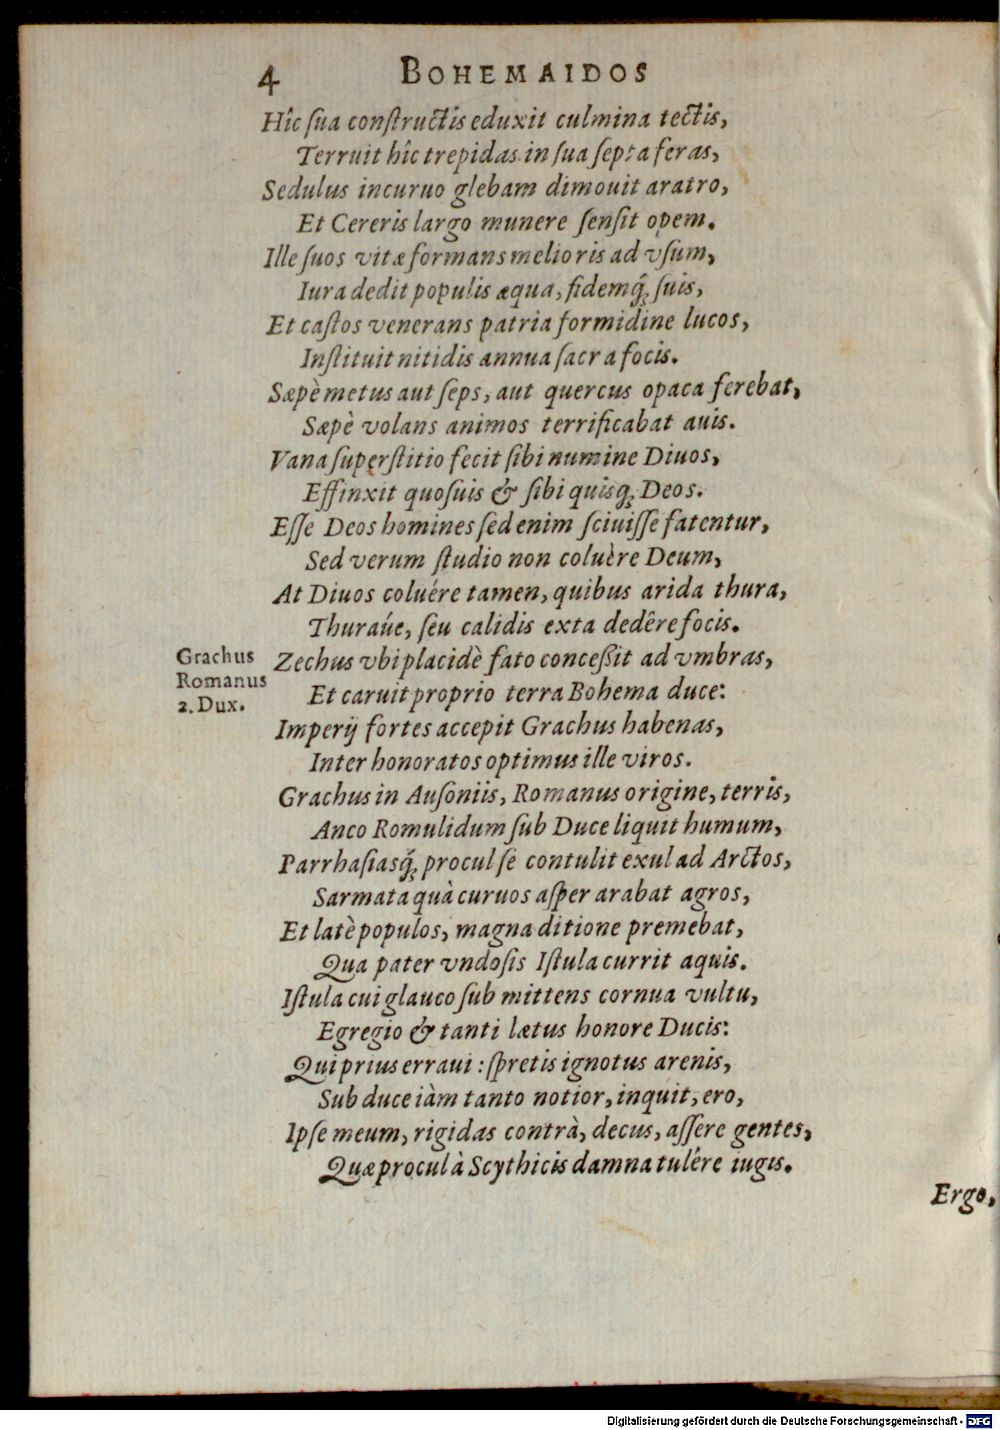 4 BOHEMAIDOS
Hîc ſua conſtructis eduxit culmina tectis,
Terruit hîc trepidas in ſua ſepta feras,
Sedulus incuruo glebam dimouit aratro,
Et Cereris largo munere ſenſit opem.
Ille ſuos vitæ formans melioris ad vſum,
Iura dedit populis æqua, fidemq́; ſuis,
Et caſtos venerans patria formidine lucos,
Inſtituit nitidis annua ſacra focis.
Sæpè metus aut ſeps, aut quercus opaca ferebat,
Sæpè volans animos terrificabat auis.
Vana ſuperſtitio fecit ſibi numine Diuos,
Effinxit quoſuis & ſibi quisq; Deos.
Eſſe Deos homines ſed enim ſciuiſſe fatentur,
Sed verum ſtudio non coluère Deum,
At Diuos coluére tamen, quibus arida thura,
Thuraúe, ſeu calidis exta dedêre focis.
Grachus
Romanus
2. Dux.
Zechus vbi placidè fato conceßit ad vmbras,
Et caruit proprio terra Bohema duce:
Imperij fortes accepit Grachus habenas,
Inter honoratos optimus ille viros.
Grachus in Auſoniis, Romanus origine, terris,
Anco Romulidum ſub Duce liquit humum,
Parrhaſiasq́; procul ſe contulit exul ad Arctos,
Sarmata quà curuos aſper arabat agros,
Et latè populos, magna ditione premebat,
Qua pater vndoſis Iſtula currit aquis.
Iſtula cui glauco ſub mittens cornua vultu,
Egregio & tanti lætus honore Ducis:
Qui prius erraui: ſpretis ignotus arenis,
Sub duce iàm tanto notior, inquit, ero,
Ipſe meum, rigidas contrà, decus, aſſere gentes,
Quæ procul à Scythicis damna tulêre iugis.
Ergo,
Digitalisierung gefördert durch die Deutsche Forschungsgemeinschaft - DFG